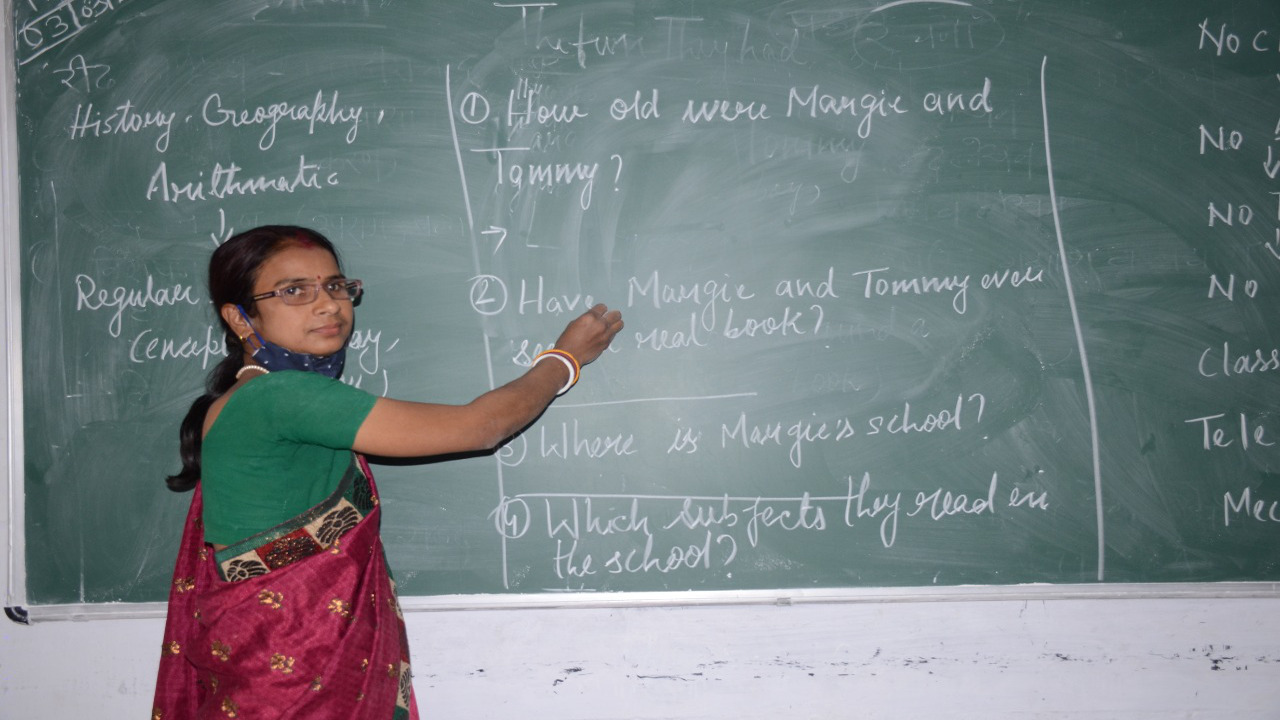 The Fun They had
History. Geography,
Arithmatic
↓
Regular
① How old were Margie and
Tommy?
→
② Have Margie and Tommy ever
real book?
③ Where is Margie's school?
④ Which subjects they read in
the school?
No
No
No
Class
Tele
Mec